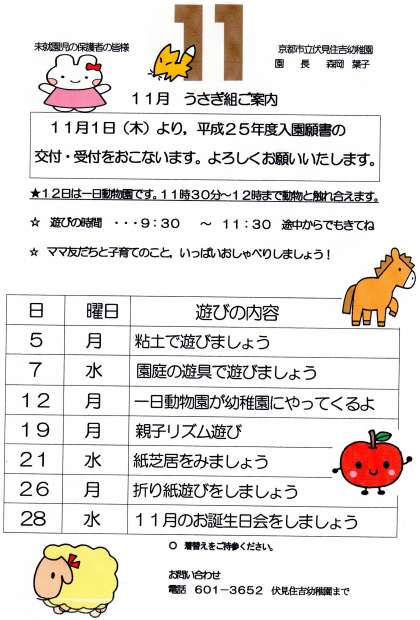 11
未就園児の保護者の皆様
京都市立伏見住吉幼稚園
園 長 森岡 葉子
11月 うさぎ組ご案内
11月1日（木）より，平成25年度入園願書の
交付・受付をおこないます。よろしくお願いいたします。
★12日は一日動物園です。11時30分～12時まで動物と触れ合えます。
☆ 遊びの時間 ・・・9：30 ～ 11：30 途中からでもきてね
☆ ママ友だちと子育てのこと，いっぱいおしゃべりしましょう！
日 曜日 遊びの内容
5 月 粘土で遊びましょう
7 水 園庭の遊具で遊びましょう
12 月 一日動物園が幼稚園にやってくるよ
19 月 親子リズム遊び
21 水 紙芝居をみましょう
26 月 折り紙遊びをしましょう
28 水 11月のお誕生日会をしましょう
○ 着替えをご持参ください。
お問い合わせ
電話 601－3652 伏見住吉幼稚園まで